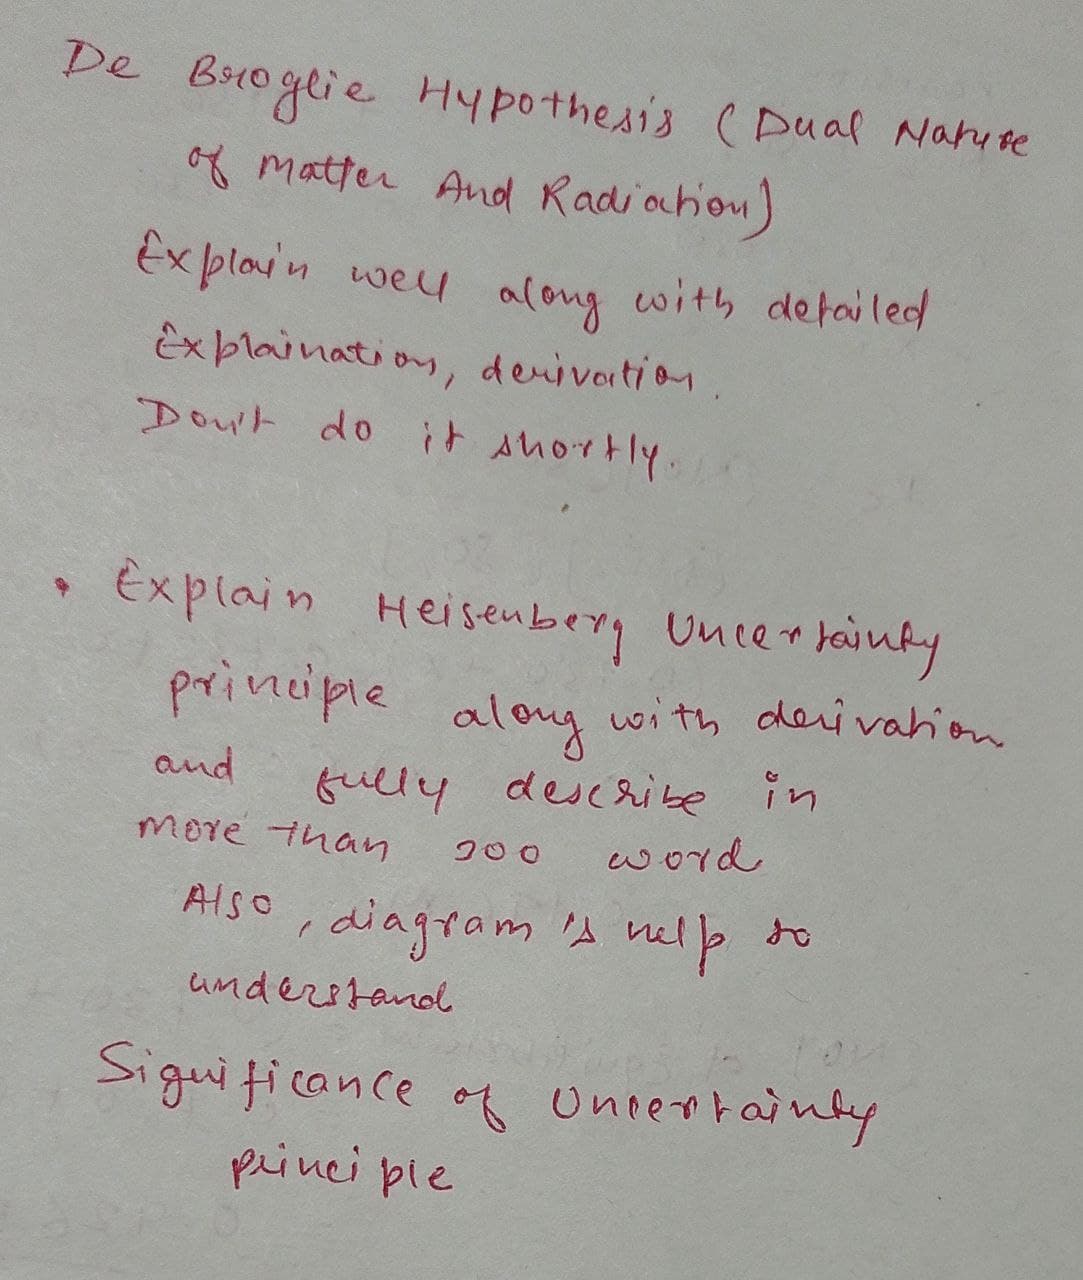 De Broglie Hypothesis (Dual Nature
of Matter And Radiation)
Explain well along with detailed
Explaination, derivation.
Don't do it shortly.
• Explain Heisenberg Uncertainty
principle along with derivation
and fully describe in
more than 200 word
Also, diagram's help to
understand
Significance of Uncertainty
principle